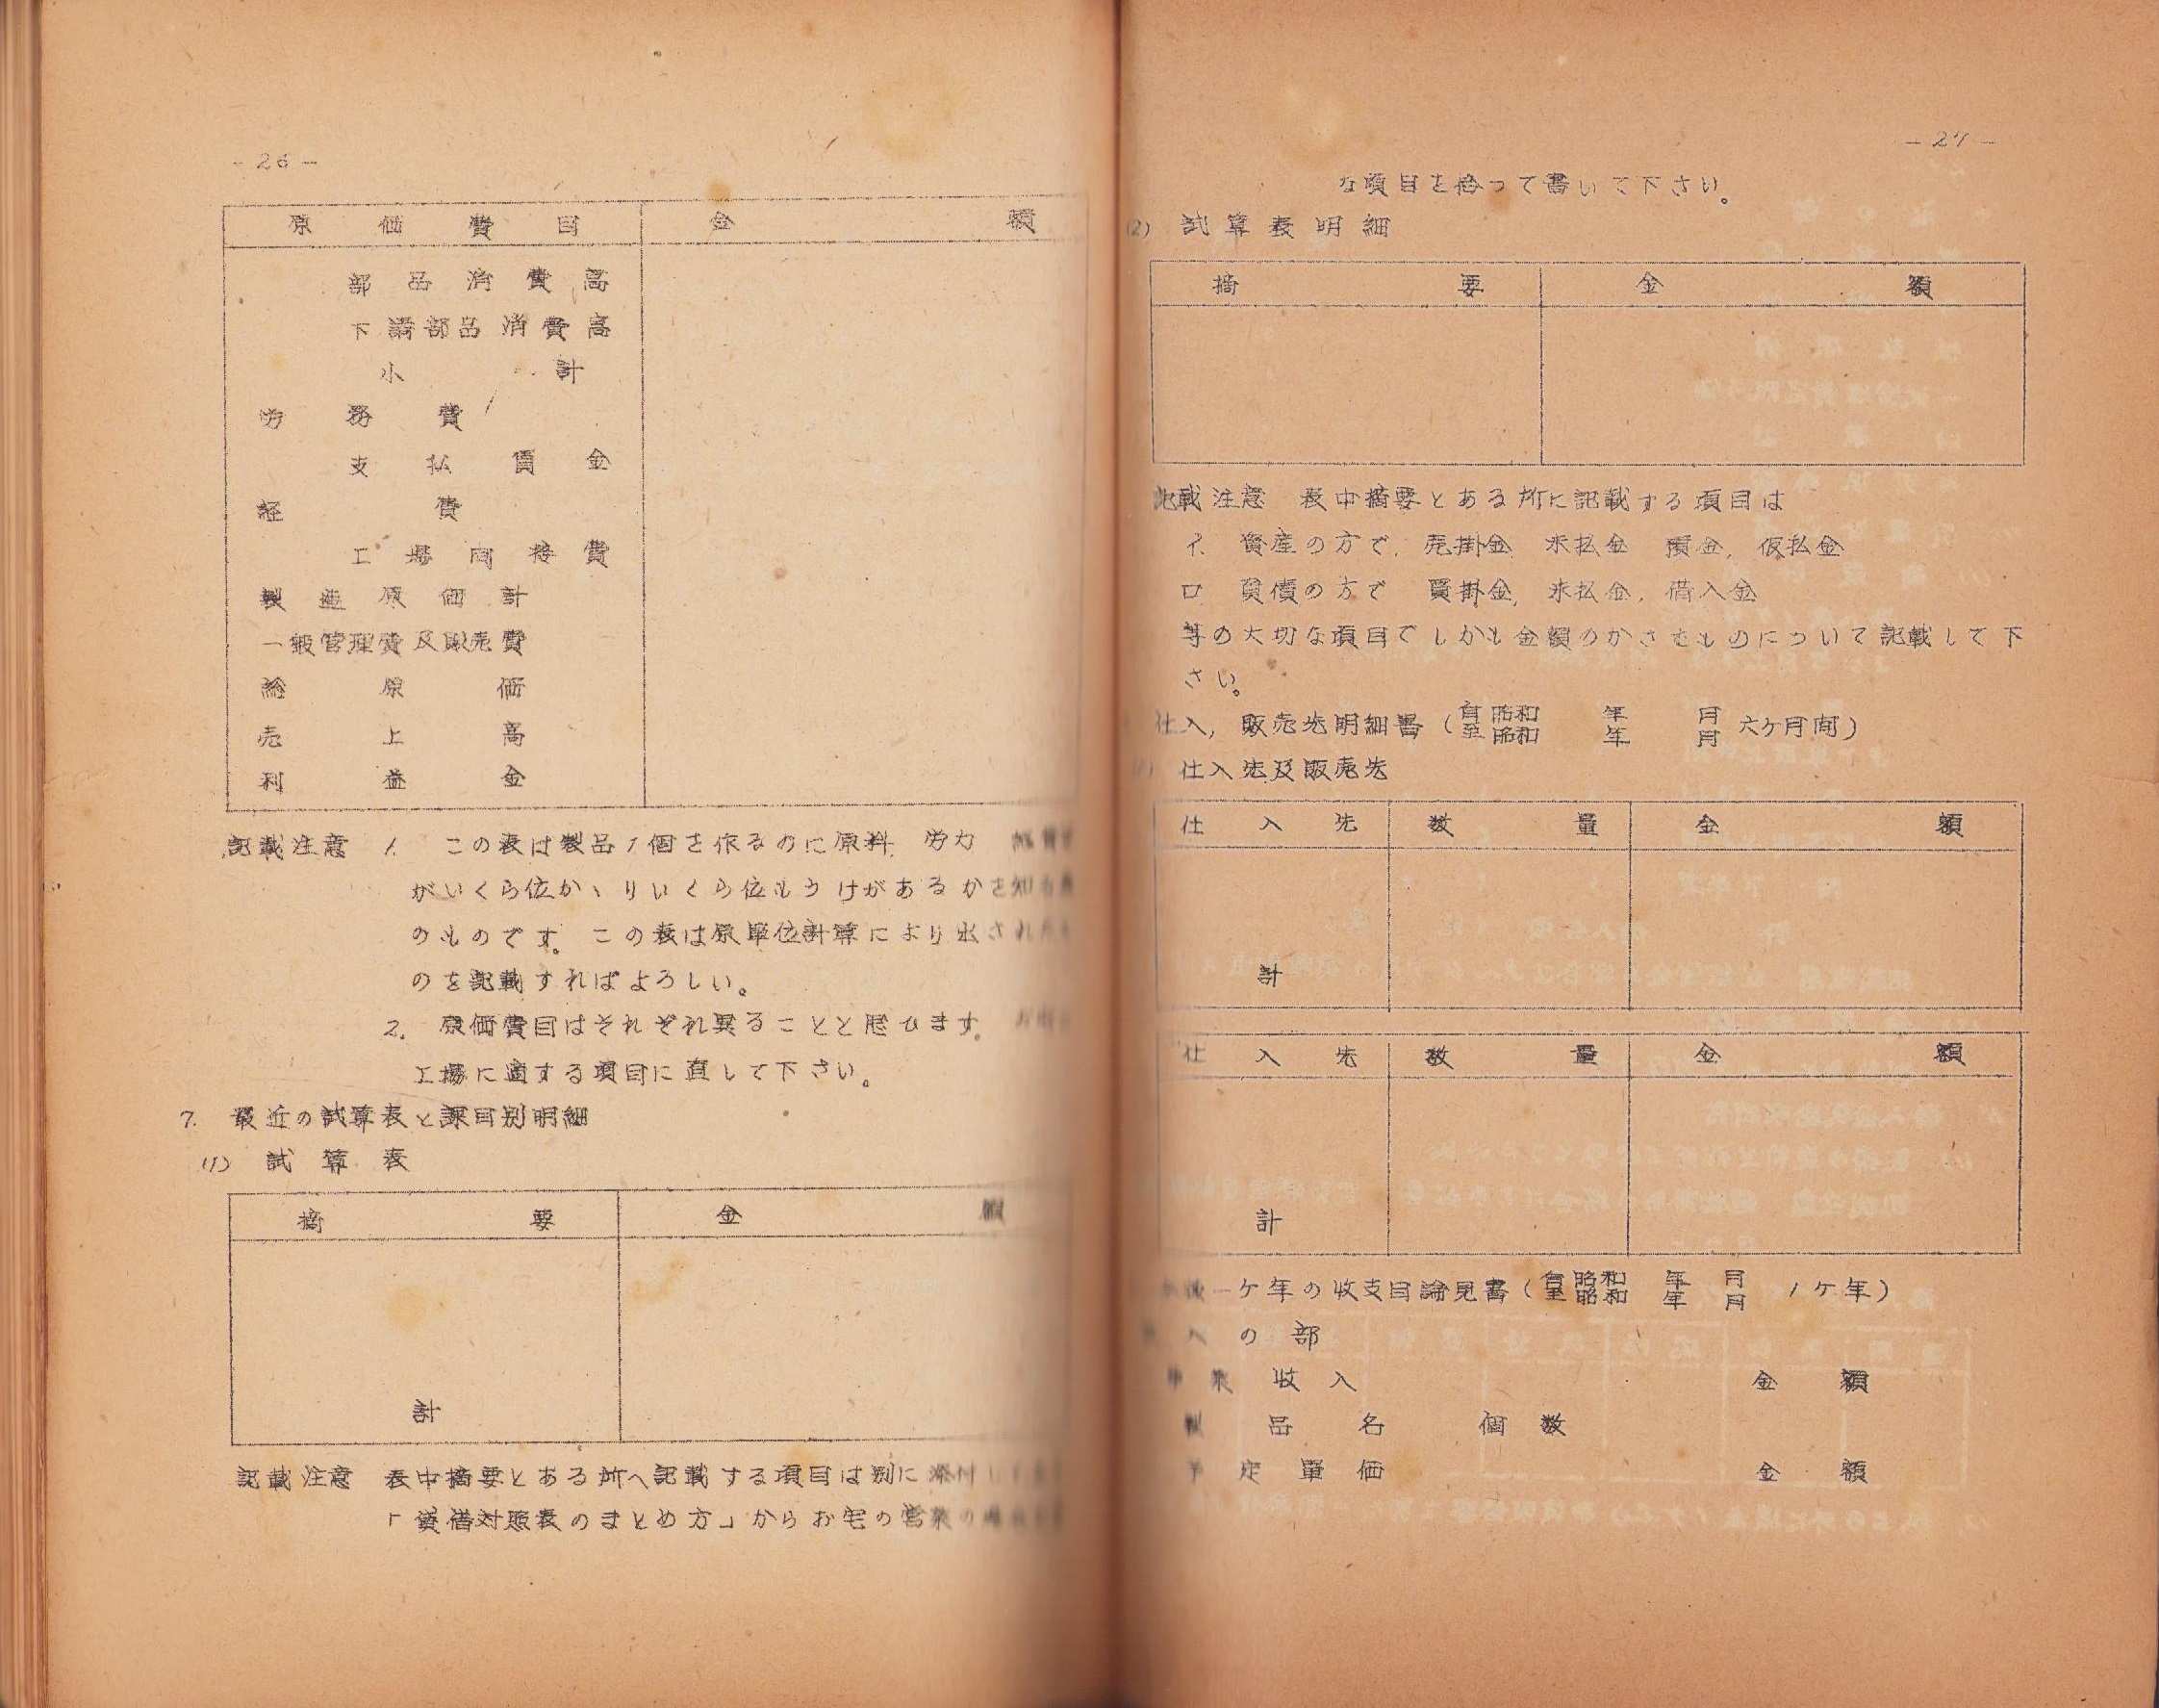 - 26 -
原価費目 金額
部品消費高
下請部品消費高
小計
労務費
支払賃金
経費
工場間接費
製造原価計
一般管理費及販売費
総原価
売上高
利益金
記載注意 1. この表は製品1個を作るのに原料、労力
がいくら位か、りいくら位もうけがあるかを知る
のものです。この表は原単位計算により出され
のを記載すればよろしい。
2. 原価費目はそれぞれ異ることと思ひます。
工場に適する項目に直して下さい。
7. 最近の試算表と課目別明細
(1) 試算表
摘要 金額
計
記載注意 表中摘要とある所へ記載する項目は別に添付し
「貸借対照表のまとめ方」からお宅の営業の
- 27 -
な項目を拾って書いて下さい。
(2) 試算表明細
摘要 金額
記載注意 表中摘要とある所に記載する項目は
イ. 資産の方で、売掛金 未払金 預金、仮払金
ロ 負債の方で 買掛金、未払金、借入金
等の大切な項目でしかも金額のかさむものについて記載して下
さい。
仕入、販売先明細書(自昭和 年 月 至昭和 年 月 六ヶ月間)
仕入先及販売先
仕入先 数量 金額
計
仕入先 数量 金額
計
一ケ年の收支目論見書(自昭和 年 月 至昭和 年 月 1ケ年)
入の部
業收入 金額
製品名 個数
予定單価 金額